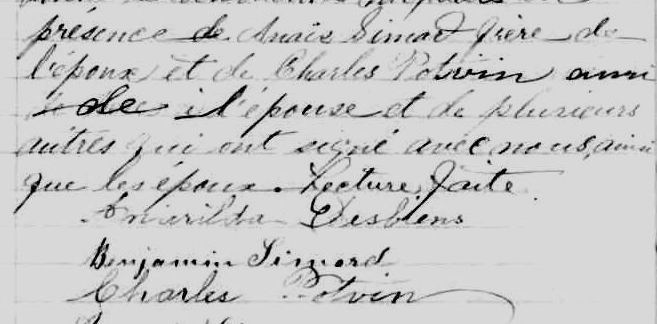 présence de Anaïs Simard frère de
l'époux et de Charles Potvin ami
de l'épouse et de plusieurs
autres qui ont signé avec nous, ainsi
que les époux. Lecture faite.
Desbiens
Benjamin Simard
Charles Potvin